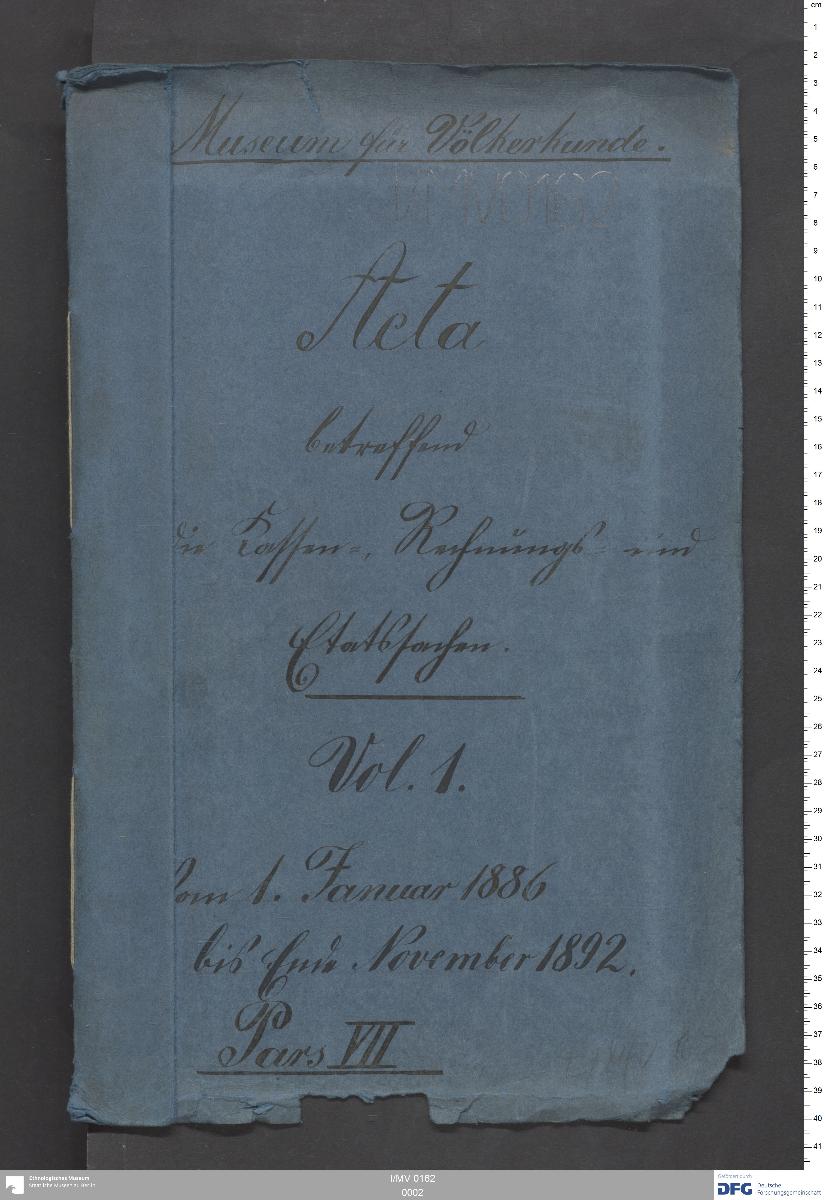 Museum für Völkerkunde.
I/MV 0162
Acta
betreffend
die Kassen-, Rechnungs- und
Etatssachen.
Vol. 1.
Vom 1. Januar 1886
bis Ende November 1892.
Pars VII
Ethnologisches Museum
Staatliche Museen zu Berlin
I/MV 0162
0002
Gefördert durch
DFG Deutsche
Forschungsgemeinschaft
cm
1
2
3
4
5
6
7
8
9
10
11
12
13
14
15
16
17
18
19
20
21
22
23
24
25
26
27
28
29
30
31
32
33
34
35
36
37
38
39
40
41